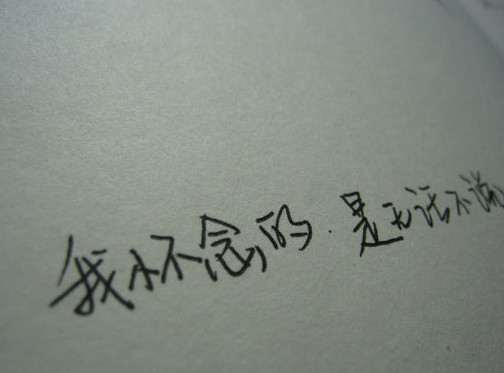 我怀念的.是无话不说